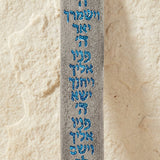 ה'
וישמרך
יאר
ה'
פניו
אליך
ויחנך
ישא
ה'
פניו
אליך
וישם